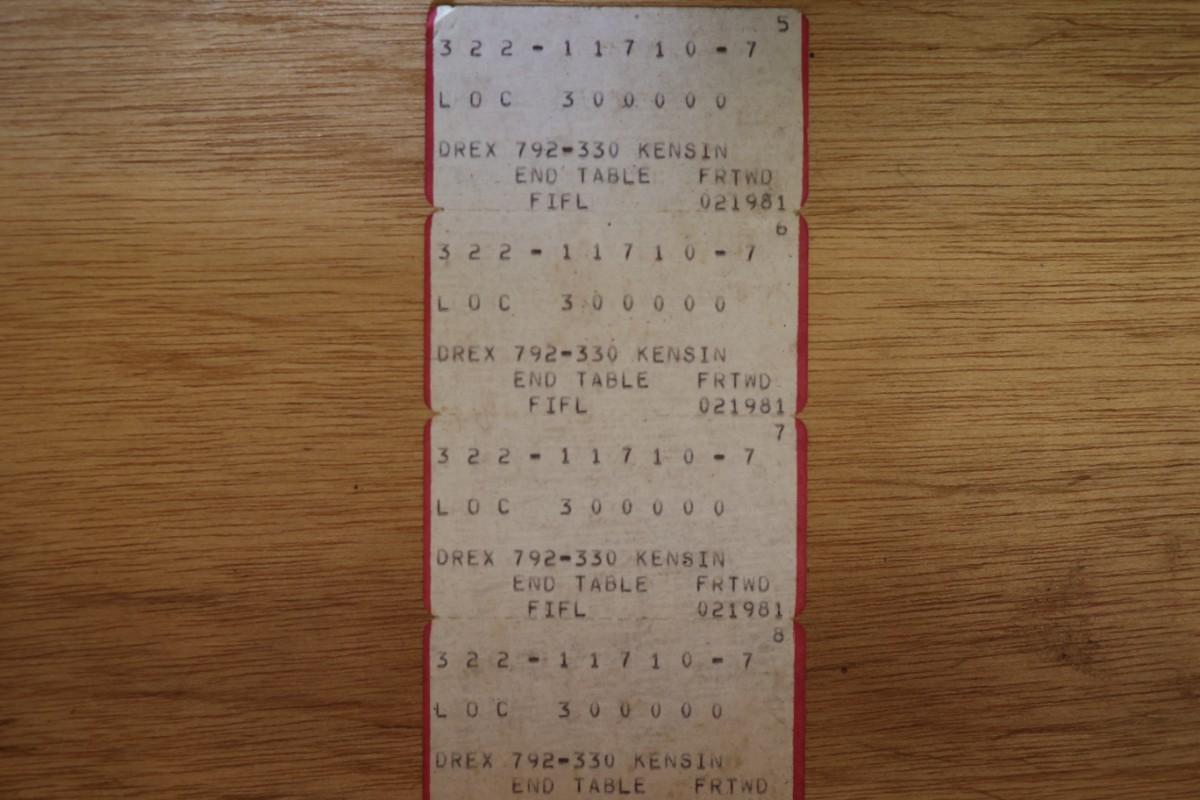 5
322-11710-7
LOC 300000
DREX 792-330 KENSIN
END TABLE FRTWD
FIFL 021981
6
322-11710-7
LOC 300000
DREX 792-330 KENSIN
END TABLE FRTWD
FIFL 021981
7
322-11710-7
LOC 300000
DREX 792-330 KENSIN
END TABLE FRTWD
FIFL 021981
8
322-11710-7
LOC 300000
DREX 792-330 KENSIN
END TABLE FRTWD